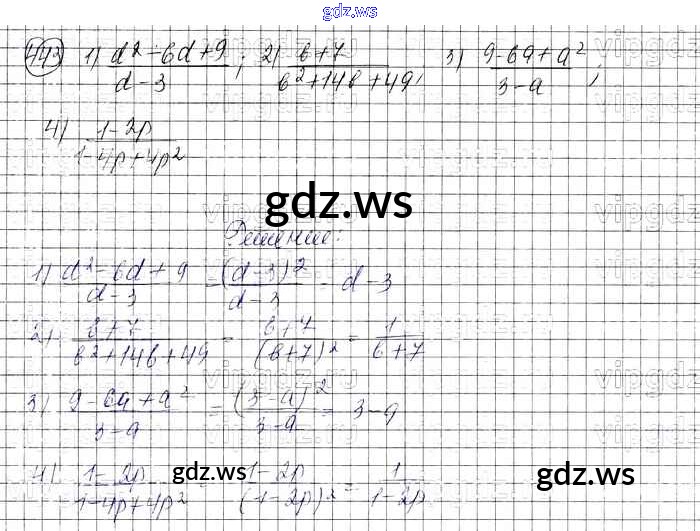 gdz.ws
443 1) d² - 6d + 9 / d - 3 ; 2) b + 7 / b² + 14b + 49 ; 3) 9 - 6a + a² / 3 - a ;
4) 1 - 2p / 1 - 4p + 4p²
gdz.ws
Решение:
1) d² - 6d + 9 / d - 3 = (d - 3)² / d - 3 = d - 3
2) b + 7 / b² + 14b + 49 = b + 7 / (b + 7)² = 1 / b + 7
3) 9 - 6a + a² / 3 - a = (3 - a)² / 3 - a = 3 - a
4) 1 - 2p / 1 - 4p + 4p² = 1 - 2p / (1 - 2p)² = 1 / 1 - 2p
gdz.ws gdz.ws